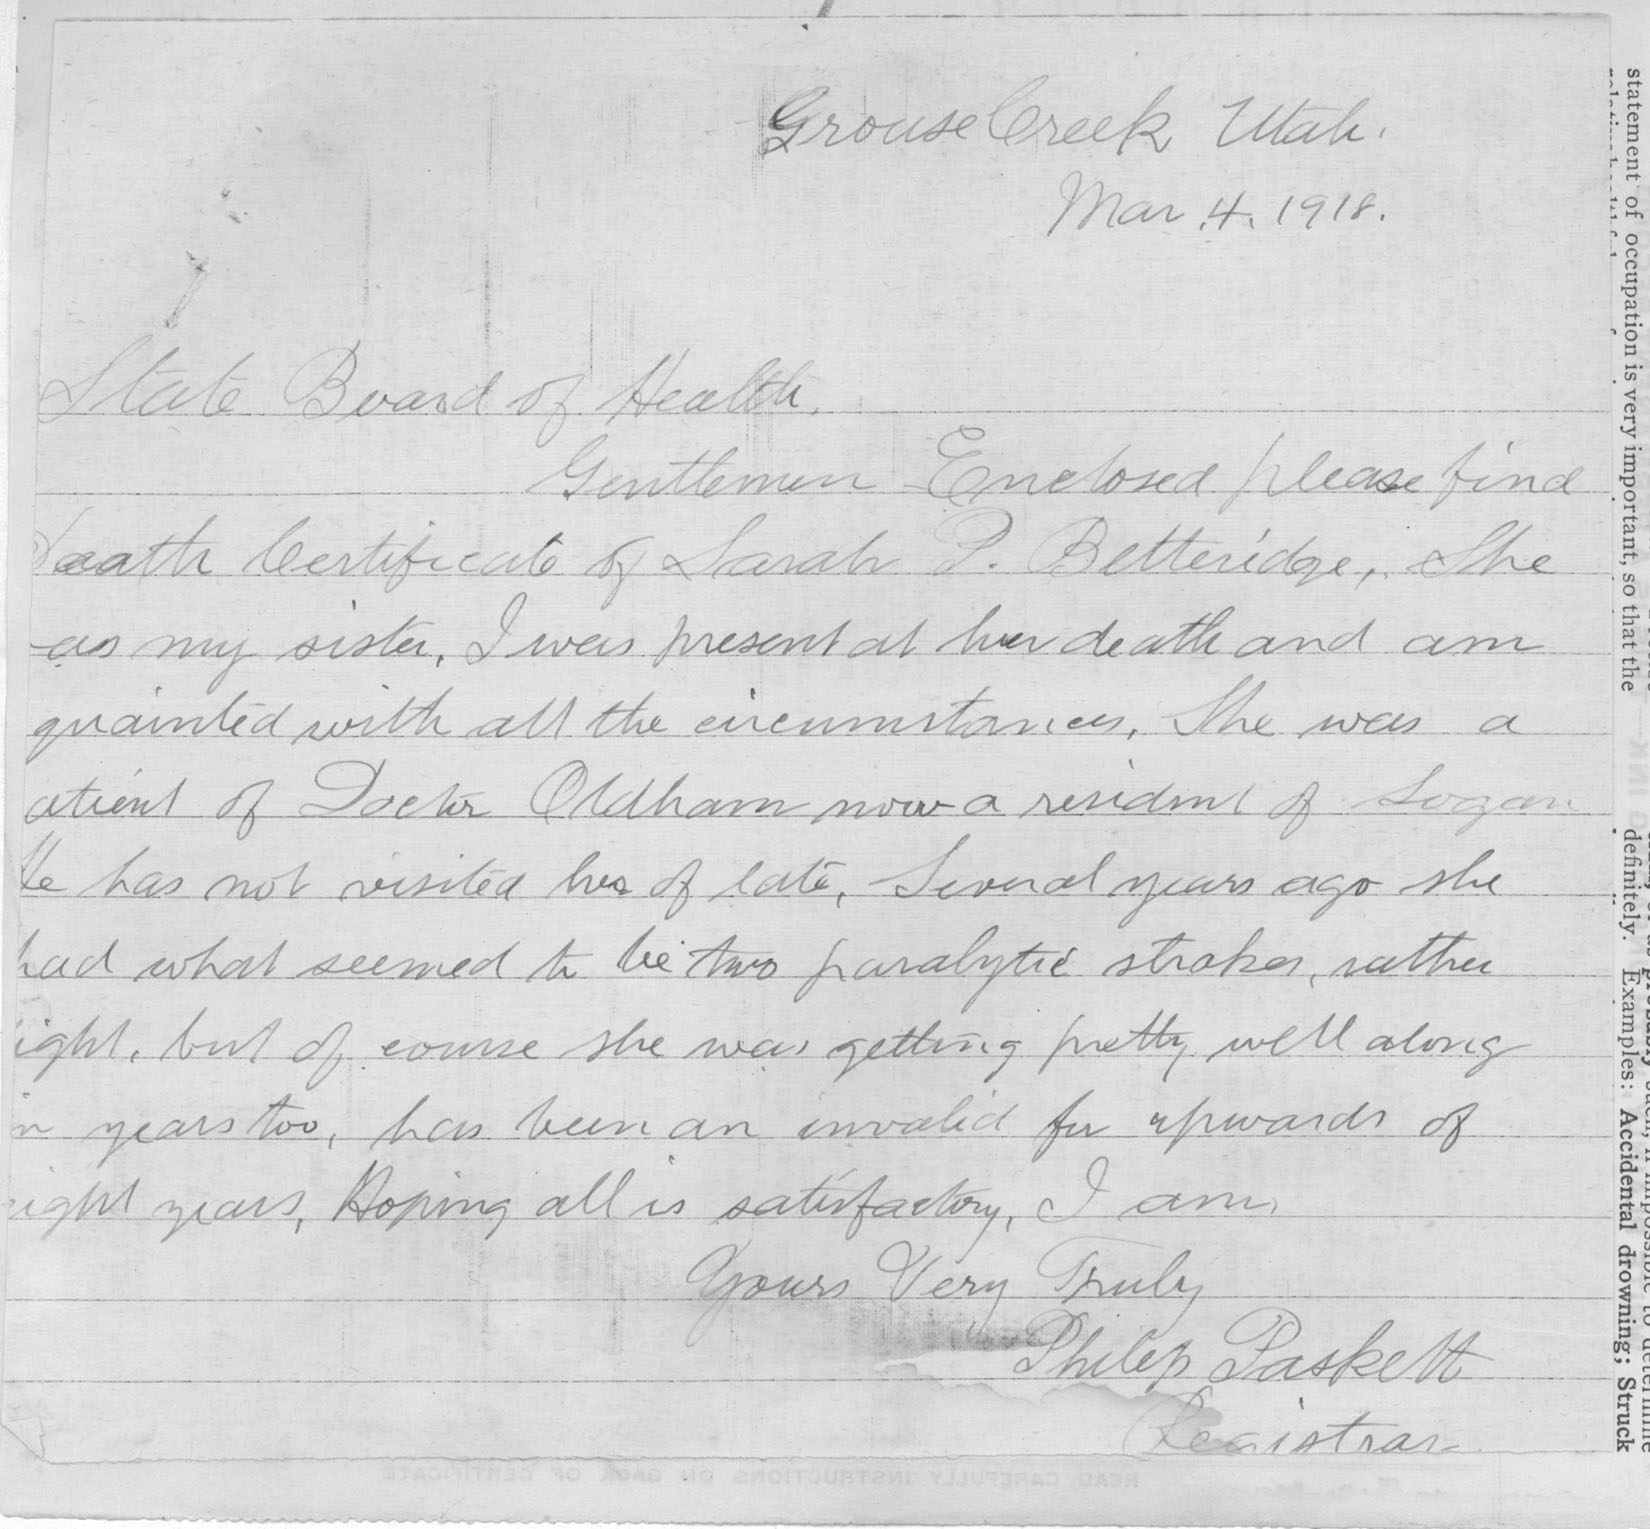 Grouse Creek Utah.
Mar. 4. 1918.
State Board of Health.
Gentlemen Enclosed please find
Daath Certificate of Sarah P. Betteridge, She
as my sister, I was present at her death and am
quainted with all the circumstances, She was a
atient of Doctor Oldham now a resident of Logan
He has not visited her of late, Several years ago she
had what seemed to be two paralytic strokes, rather
ight, but of course she was getting pretty well along
in years too, has been an invalid for upwards of
ight years, Hoping all is satisfactory, I am,
Yours Very Truly
Philip Paskett
Registrar
READ CAREFULLY INSTRUCTIONS ON BACK OF CERTIFICATE
statement of occupation is very important, so that the
definitely. Examples: Accidental drowning; Struck
probably such, if impossible to determine